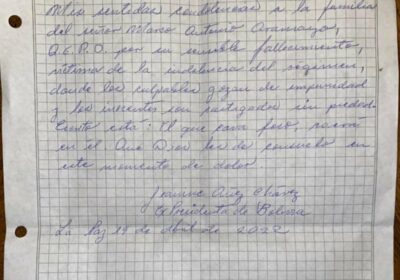 Mis sentidas condolencias a la familia
del señor Milaos Antonio Aramayo,
Q.E.P.D. por su sensible fallecimiento,
víctima de la indolencia del régimen,
donde los culpables gozan de impunidad
y los inocentes son castigados sin piedad.
Escrito está: El que cava foso, caerá
en él. Que Dios les de consuelo en
este momento de dolor
Jeanine Añez Chávez
Expresidenta de Bolivia
La Paz 19 de abril de 2022